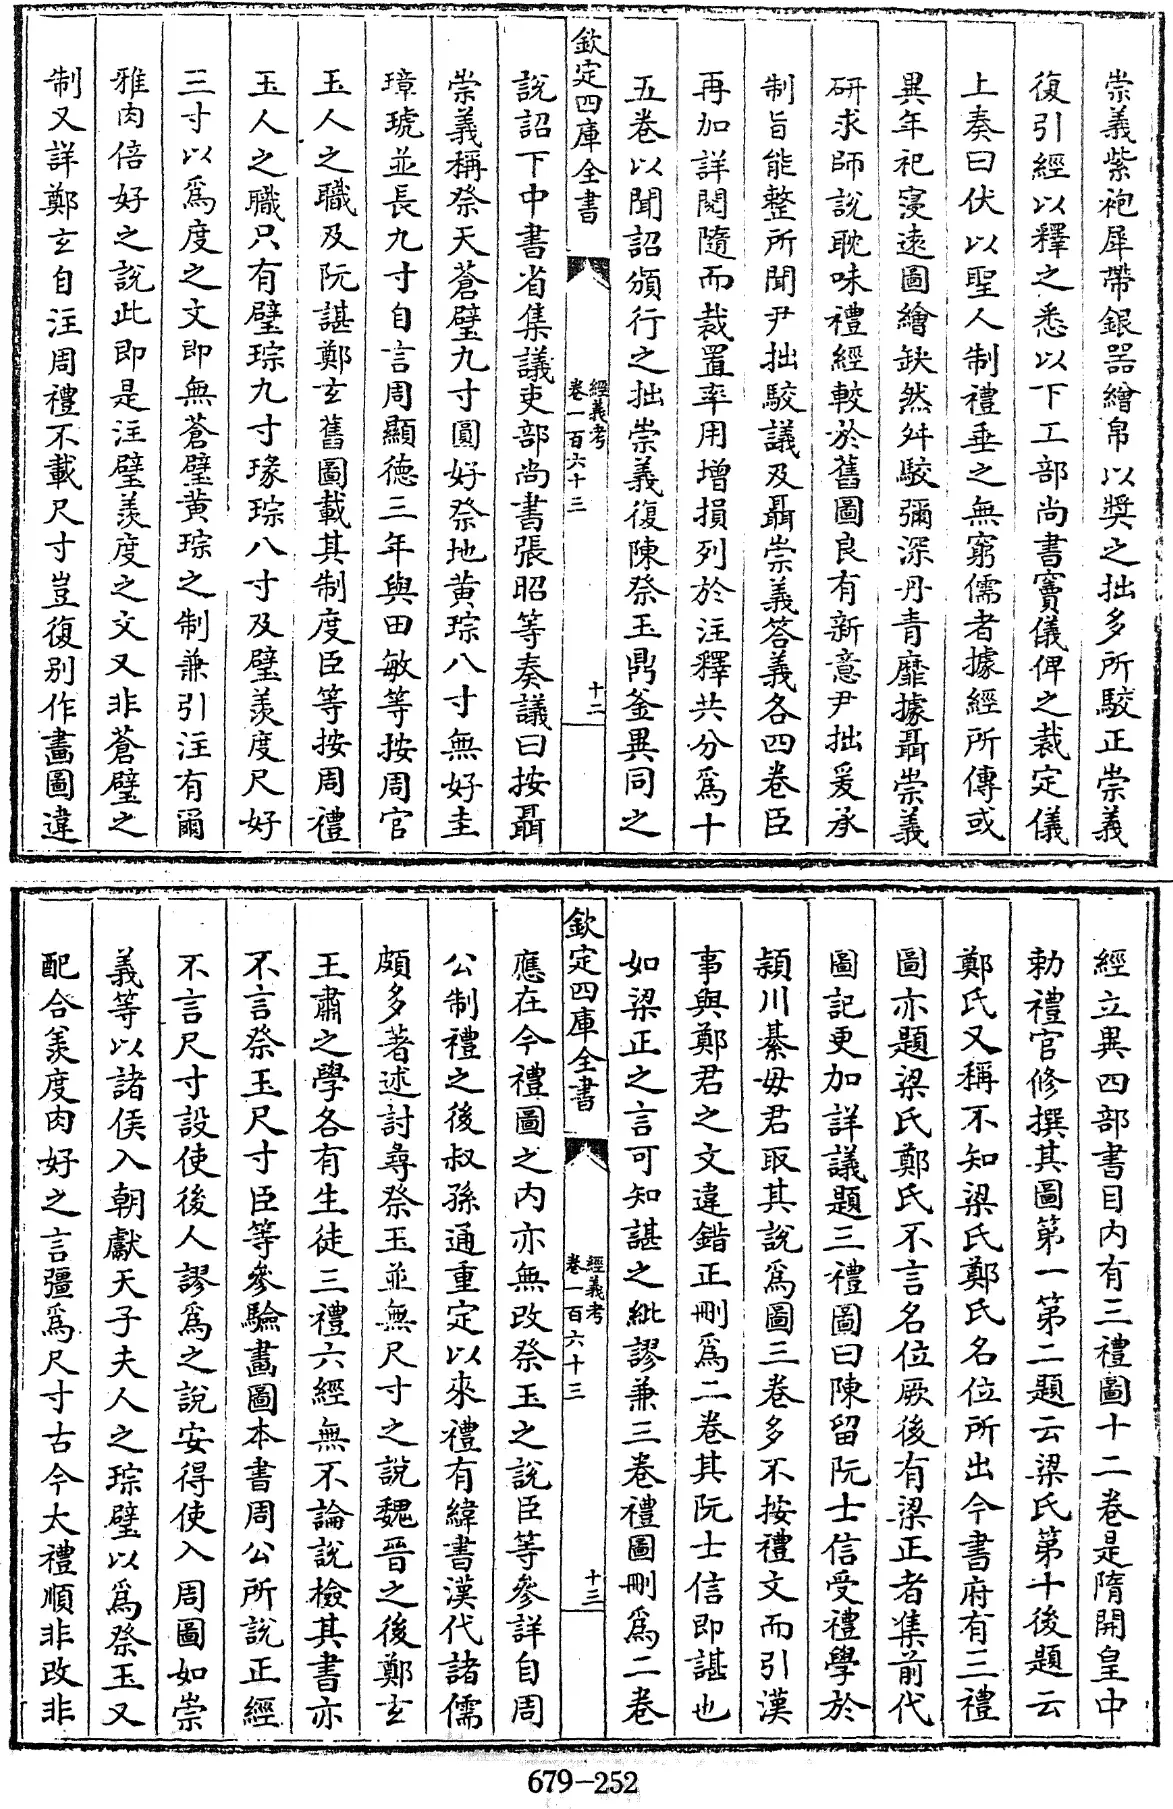 崇義紫袍犀帶銀器繒帛以奬之拙多所駮正崇義
復引經以釋之悉以下工部尚書竇儀俾之裁定儀
上奏曰伏以聖人制禮垂之無窮儒者據經所傳或
異年祀寖遠圖繪缺然舛駮彌深丹青靡據聶崇義
研求師說耽味禮經較於舊圖良有新意尹拙爰承
制旨能整所聞尹拙駮議及聶崇義答義各四卷臣
再加詳閱隨而裁置率用增損列於注釋共分爲十
五卷以聞詔頒行之拙崇義復陳祭玉鼎釜異同之
欽定四庫全書
經義考
卷一百六十三
十二
說詔下中書省集議吏部尚書張昭等奏議曰按聶
崇義稱祭天蒼璧九寸圓好祭地黄琮八寸無好圭
璋琥並長九寸自言周顯德三年與田敏等按周官
玉人之職及阮諶鄭玄舊圖載其制度臣等按周禮
玉人之職只有璧琮九寸瑑琮八寸及璧羨度尺好
三寸以爲度之文即無蒼璧黄琮之制兼引注有爾
雅肉倍好之說此即是注璧羨度之文又非蒼璧之
制又詳鄭玄自注周禮不載尺寸豈復别作畫圖違
經立異四部書目内有三禮圖十二卷是隋開皇中
勅禮官修撰其圖第一第二題云梁氏第十後題云
鄭氏又稱不知梁氏鄭氏名位所出今書府有三禮
圖亦題梁氏鄭氏不言名位厥後有梁正者集前代
圖記更加詳議題三禮圖曰陳留阮士信受禮學於
潁川綦毋君取其說爲圖三卷多不按禮文而引漢
事與鄭君之文違錯正刪爲二卷其阮士信即諶也
如梁正之言可知諶之紕謬兼三卷禮圖刪爲二卷
欽定四庫全書
經義考
卷一百六十三
十三
應在今禮圖之内亦無改祭玉之說臣等參詳自周
公制禮之後叔孫通重定以來禮有緯書漢代諸儒
頗多著述討尋祭玉並無尺寸之說魏晉之後鄭玄
王肅之學各有生徒三禮六經無不論說檢其書亦
不言祭玉尺寸臣等參驗畫圖本書周公所說正經
不言尺寸設使後人謬爲之說安得使入周圖如崇
義等以諸侯入朝獻天子夫人之琮璧以爲祭玉又
配合羨度肉好之言彊爲尺寸古今大禮順非改非
679-252